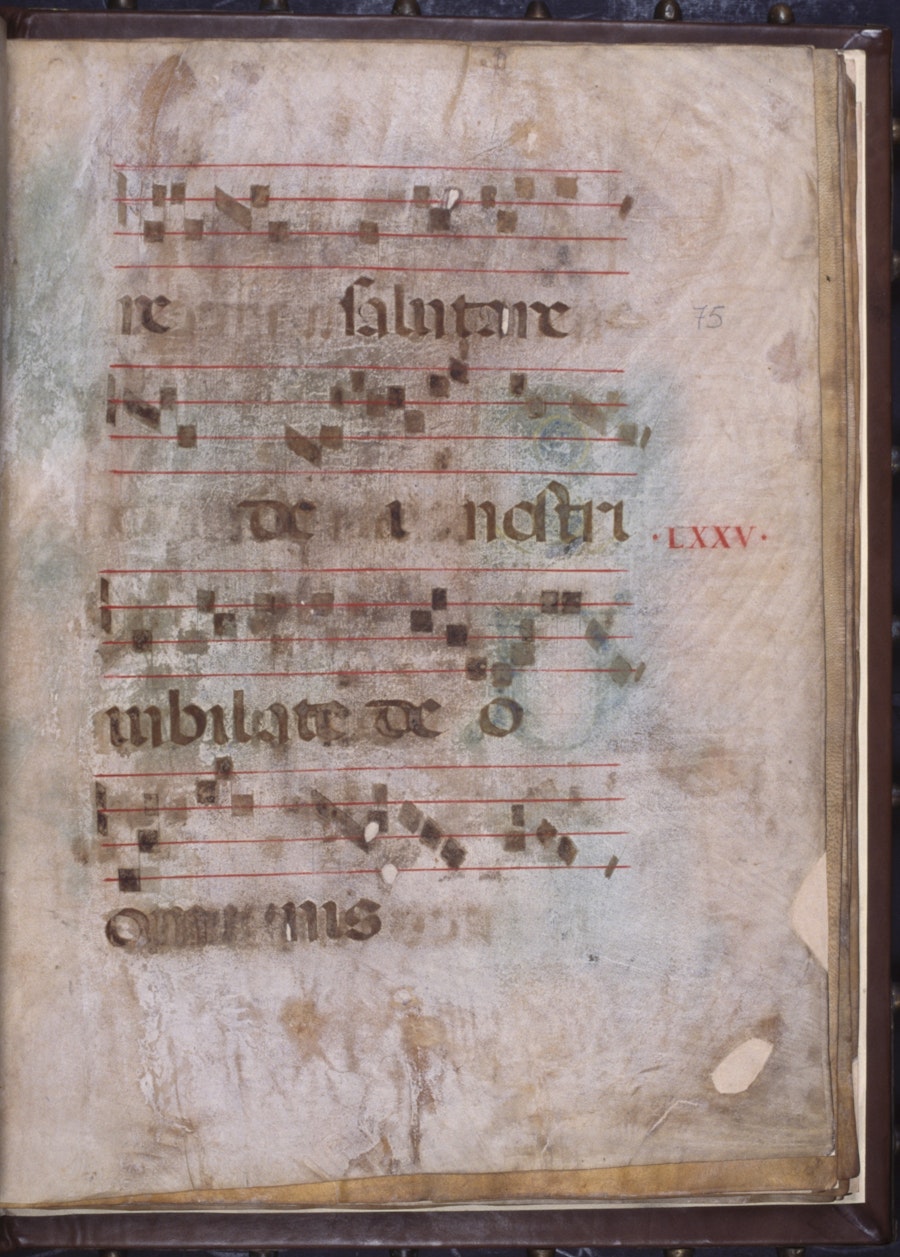 re salutare
75
de i nostri
· LXXV ·
iubilate de o
o mnis